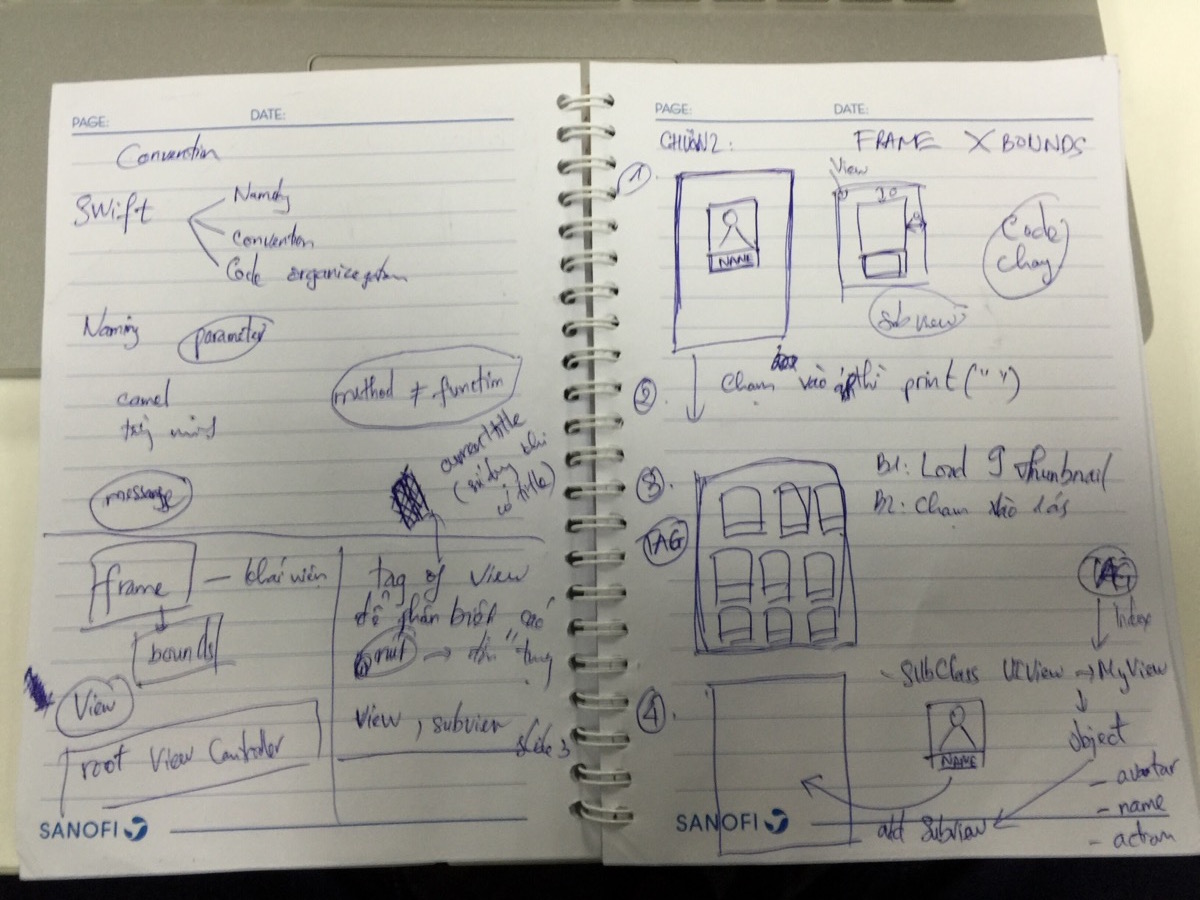 PAGE: DATE:
Convention
Swift
Naming
Convention
Code organization
Naming parameter
camel
method ≠ function
message
current title
(sử dụng khi
có title)
frame — khái niệm
bounds
View
root View Controller
tag of view
để phân biệt các
nút →
View, subview
slide 3
SANOFI
PAGE: DATE:
FRAME X BOUNDS
1
View
10
NAME
Subview
Code
chay
2
Chạm vào thì print (" ")
3
B1: Load 9 Thumbnail
B2: Chạm vào
TAG
TAG
Index
- SubClass UIView → MyView
4
object
NAME
- avatar
- name
- action
add Subview
SANOFI